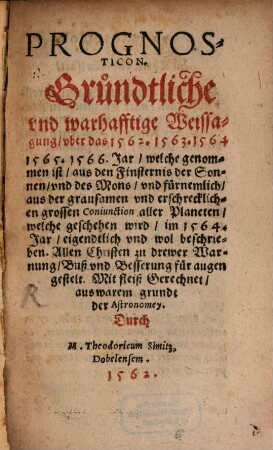 PROGNOS-
TICON.
Gründtliche
vnd warhafftige Weissa-
gung / vber das 1562. 1563. 1564
1565. 1566. Jar / welche genom-
men ist / aus den Finsternis der Son-
nen / vnd des Mons / vnd fürnemlich /
aus der grausamen vnd erschrecklich-
en grossen Coniunction aller Planeten /
welche geschehen wird / im 1564.
Jar / eigendtlich vnd wol beschrie-
ben. Allen Christen zu drewer War-
nung / Buß vnd Besserung für augen
gestelt. Mit fleiß Gerechnet /
aus warem grundt
der Astronomey.
Durch
M. Theodoricum Simitz,
Dobelensem.
1562.